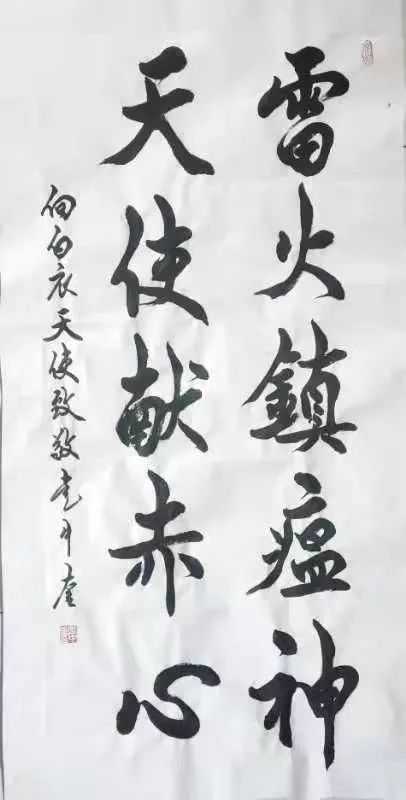 雷火鎮瘟神
天使献赤心
向白衣天使致敬